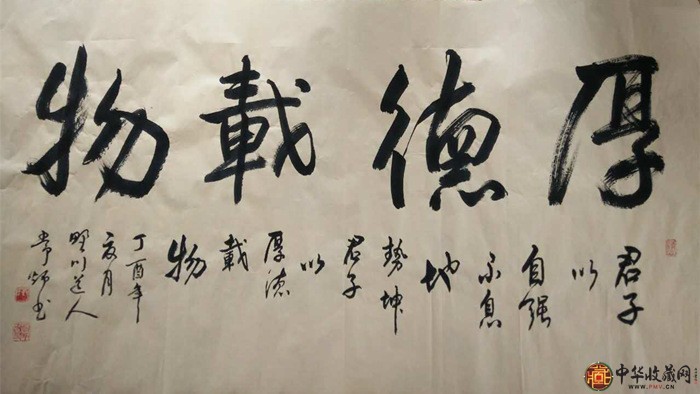 厚德載物
君子
以
自强
不息
地
勢坤
君子
以
厚德
載
物
丁酉年
夏月
川道人
常书
中华收藏网